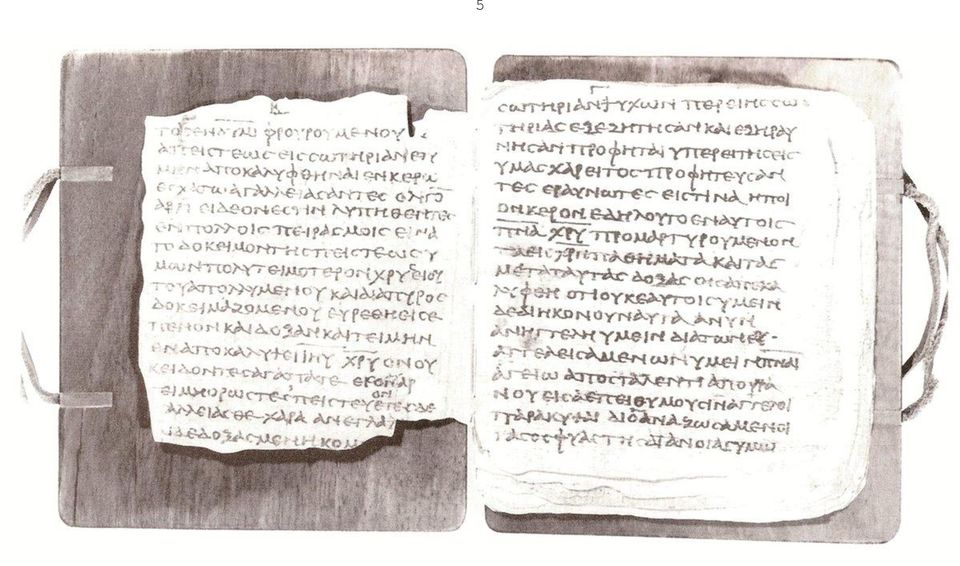 5
ΦΡΟΥΡΟΥΜΕΝΟΥ
ΕΙϹϹΩΤΗΡΙΑΝΕΤΥ
ΜΗΝΑΠΟΚΑΛΥΦΘΗΝΑΙΕΝΚΕΡΩ
ΕϹΧΑΤΩΑΓΑΛΛΕΙΑϹΑΝΤΕϹΟΛΙΓΟ̅
ΑΡΤΙΕΙΔΕΟΝΕϹΤΙΝΛΥΠΗΘΕΝΤΕϹ
ΕΝΠΟΛΛΟΙϹΠΕΙΡΑϹΜΟΙϹΕΙΝΑ
ΤΟΔΟΚΕΙΜΟΝΤΗϹΠΕΙϹΤΕΩϹΥ
ΜΩΝΠΟΛΥΤΕΙΜΟΤΕΡΟΝΧΡΥϹΕΙΟΥ
ΤΟΥΑΠΟΛΥΜΕΝΟΥΚΑΙΔΙΑΠΥΡΟϹ
ΔΟΚΕΙΜΑΖΟΜΕΝΟΥΕΥΡΕΘΗΕΙϹΕ
ΠΕΝΟΝΚΑΙΔΟΞΑΝΚΑΙΤΕΙΜΗΝ
ΕΝΑΠΟΚΑΛΥΨΕΙΙΗΥΧΡΥΟΝΟΥ
ΚΕΙΔΟΝΤΕϹΑΓΑΠΑΤΕ
ΠΕΙϹΤΕΥΕΤΕϹΔΕ
ΑΛΛΕΙΑϹΘΕΧΑΡΑΑΝΕΓΛΑΛ
ΔΕΔΟΞΑϹΜΕΝΗΚΟΜ
Γ̅
ϹΩΤΗΡΙΑΝΨΥΧΩΝΠΕΡΕΙΗϹϹΩ
ΤΗΡΙΑϹΕΞΕΖΗΤΗϹΑΝΚΑΙΕΞΗΡΑΥ
ΝΗϹΑΝΠΡΟΦΗΤΑΙΥΠΕΡΕΙΤΗϹΕΙϹ
ΥΜΑϹΧΑΡΕΙΤΟϹΠΡΟΦΗΤΕΥϹΑΝ
ΤΕϹΕΡΑΥΝΩΤΕϹΕΙϹΤΙΝΑΗΠΟΙ
ΟΝΚΕΡΟΝΕΔΗΛΟΥΤΟΕΝΑΥΤΟΙϹ
ΠΝΑΧΡΥΠΡΟΜΑΡΤΥΡΟΥΜΕΝΟΝ
ΤΑΕΙϹΧΡΝΠΑΘΗΜΑΤΑΚΑΙΤΑϹ
ΜΕΤΑΤΑΥΤΑϹΔΟΞΑϹΟΙϹΑΠΕΚΑ
ΛΥΦΘΗΟΤΙΟΥΚΕΑΥΤΟΙϹΥΜΕΙΝ
ΔΕΔΙΗΚΟΝΟΥΝΑΥΤΑΑΝΥΝ
ΑΝΗΓΓΕΛΗΥΜΕΙΝΔΙΑΤΩΝΕΥ
ΑΓΓΕΛΕΙϹΑΜΕΝΩΝΥΜΕΙΝΠΝΑΙ
ΑΓΕΙΩΑΠΟϹΤΑΛΕΝΤΙΑΠΟΥΡΑ
ΝΟΥΕΙϹΑΕΠΕΙΘΥΜΟΥϹΙΝΑΓΓΕΛΟΙ
ΠΑΡΑΚΥΨΑΙΔΙΟΑΝΑΖΩϹΑΜΕΝΟΙ
ΤΑϹΟϹΦΥΑϹΤΗϹΔΙΑΝΟΙΑϹΥΜΩ